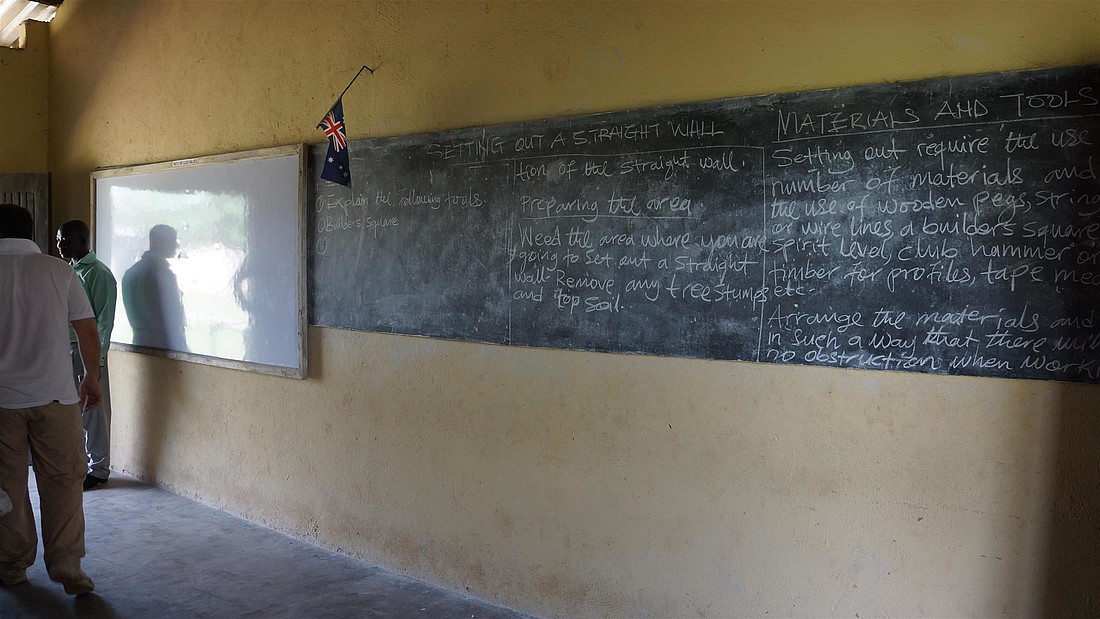 SETTING OUT A STRAIGHT WALL
Explain the following tools:
Builders Square
tion of the straight wall.
Preparing the area.
Weed the area where you are
going to set out a straight
wall. Remove any tree stumps
and top soil.
MATERIALS AND TOOLS
Setting out require the use
number of materials and
the use of wooden pegs, string
or wire lines, a builder's square
spirit level, club hammer or
timber for profiles, tape
etc.
Arrange the materials and
in such a way that there
no obstruction when